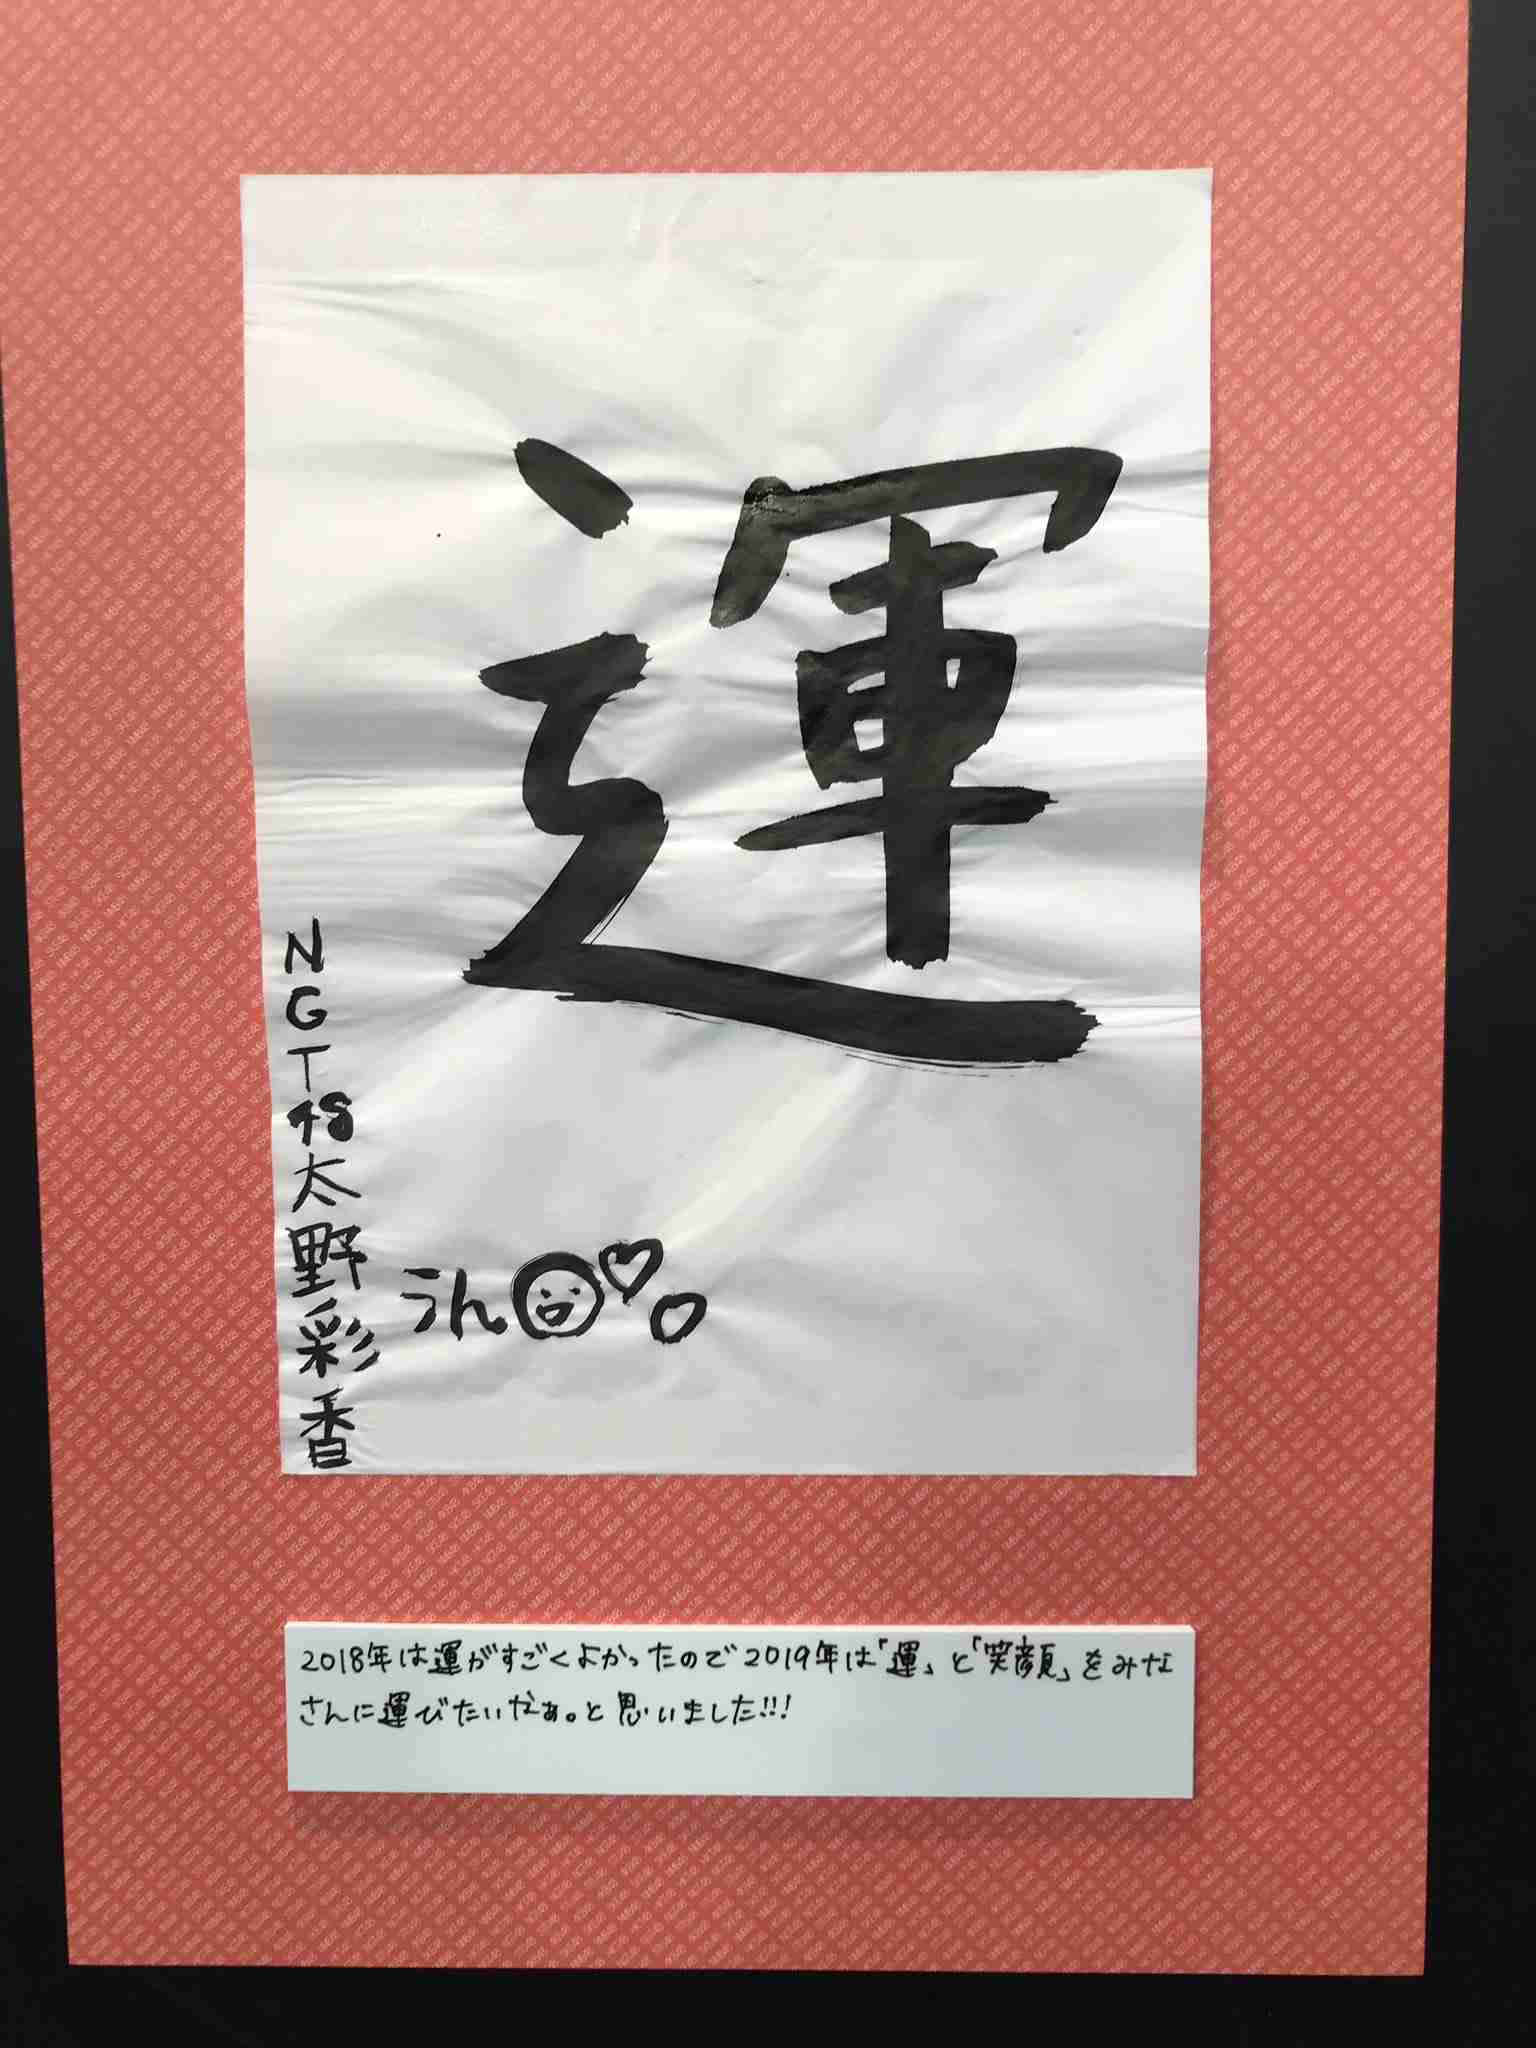 運
NGT48太野彩香
うん
2018年は運がすごくよかったので2019年は「運」と「笑顔」をみな
さんに運びたいなぁ。と思いました!!!